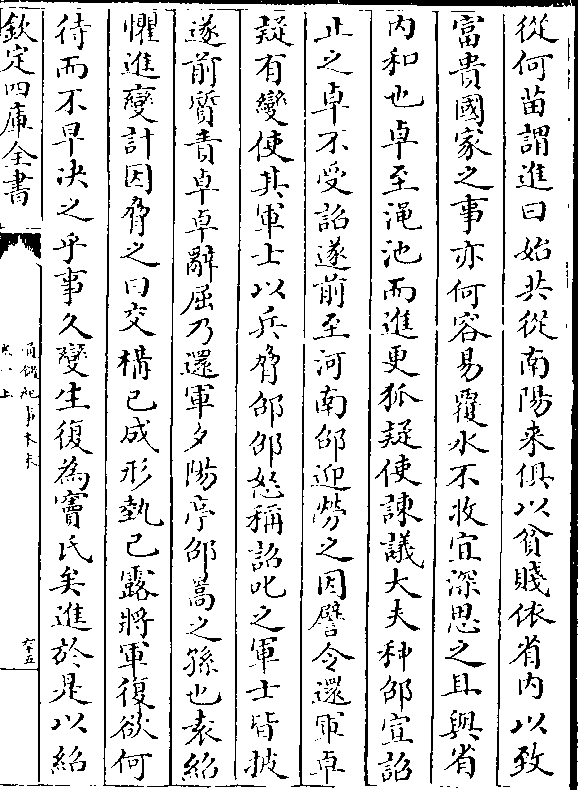 從何苗謂進曰始共從南陽来俱以貧賤依省内以致
富貴國家之事亦何容易覆水不收宜深思之且與省
内和也卓至澠池而進更狐疑使諫議大夫种邵宣詔
止之卓不受詔遂前至河南邵迎勞之因譬令還軍卓
疑有變使其軍士以兵脅邵邵怒稱詔叱之軍士皆披
遂前質責卓卓辭屈乃還軍夕陽亭邵暠之孫也袁紹
懼進變計因脅之曰交構已成形埶已露將軍復欲何
待而不早决之乎事久變生復為竇氏矣進於是以紹
欽定四庫全書
通鑑紀事本末
卷八上
六十五